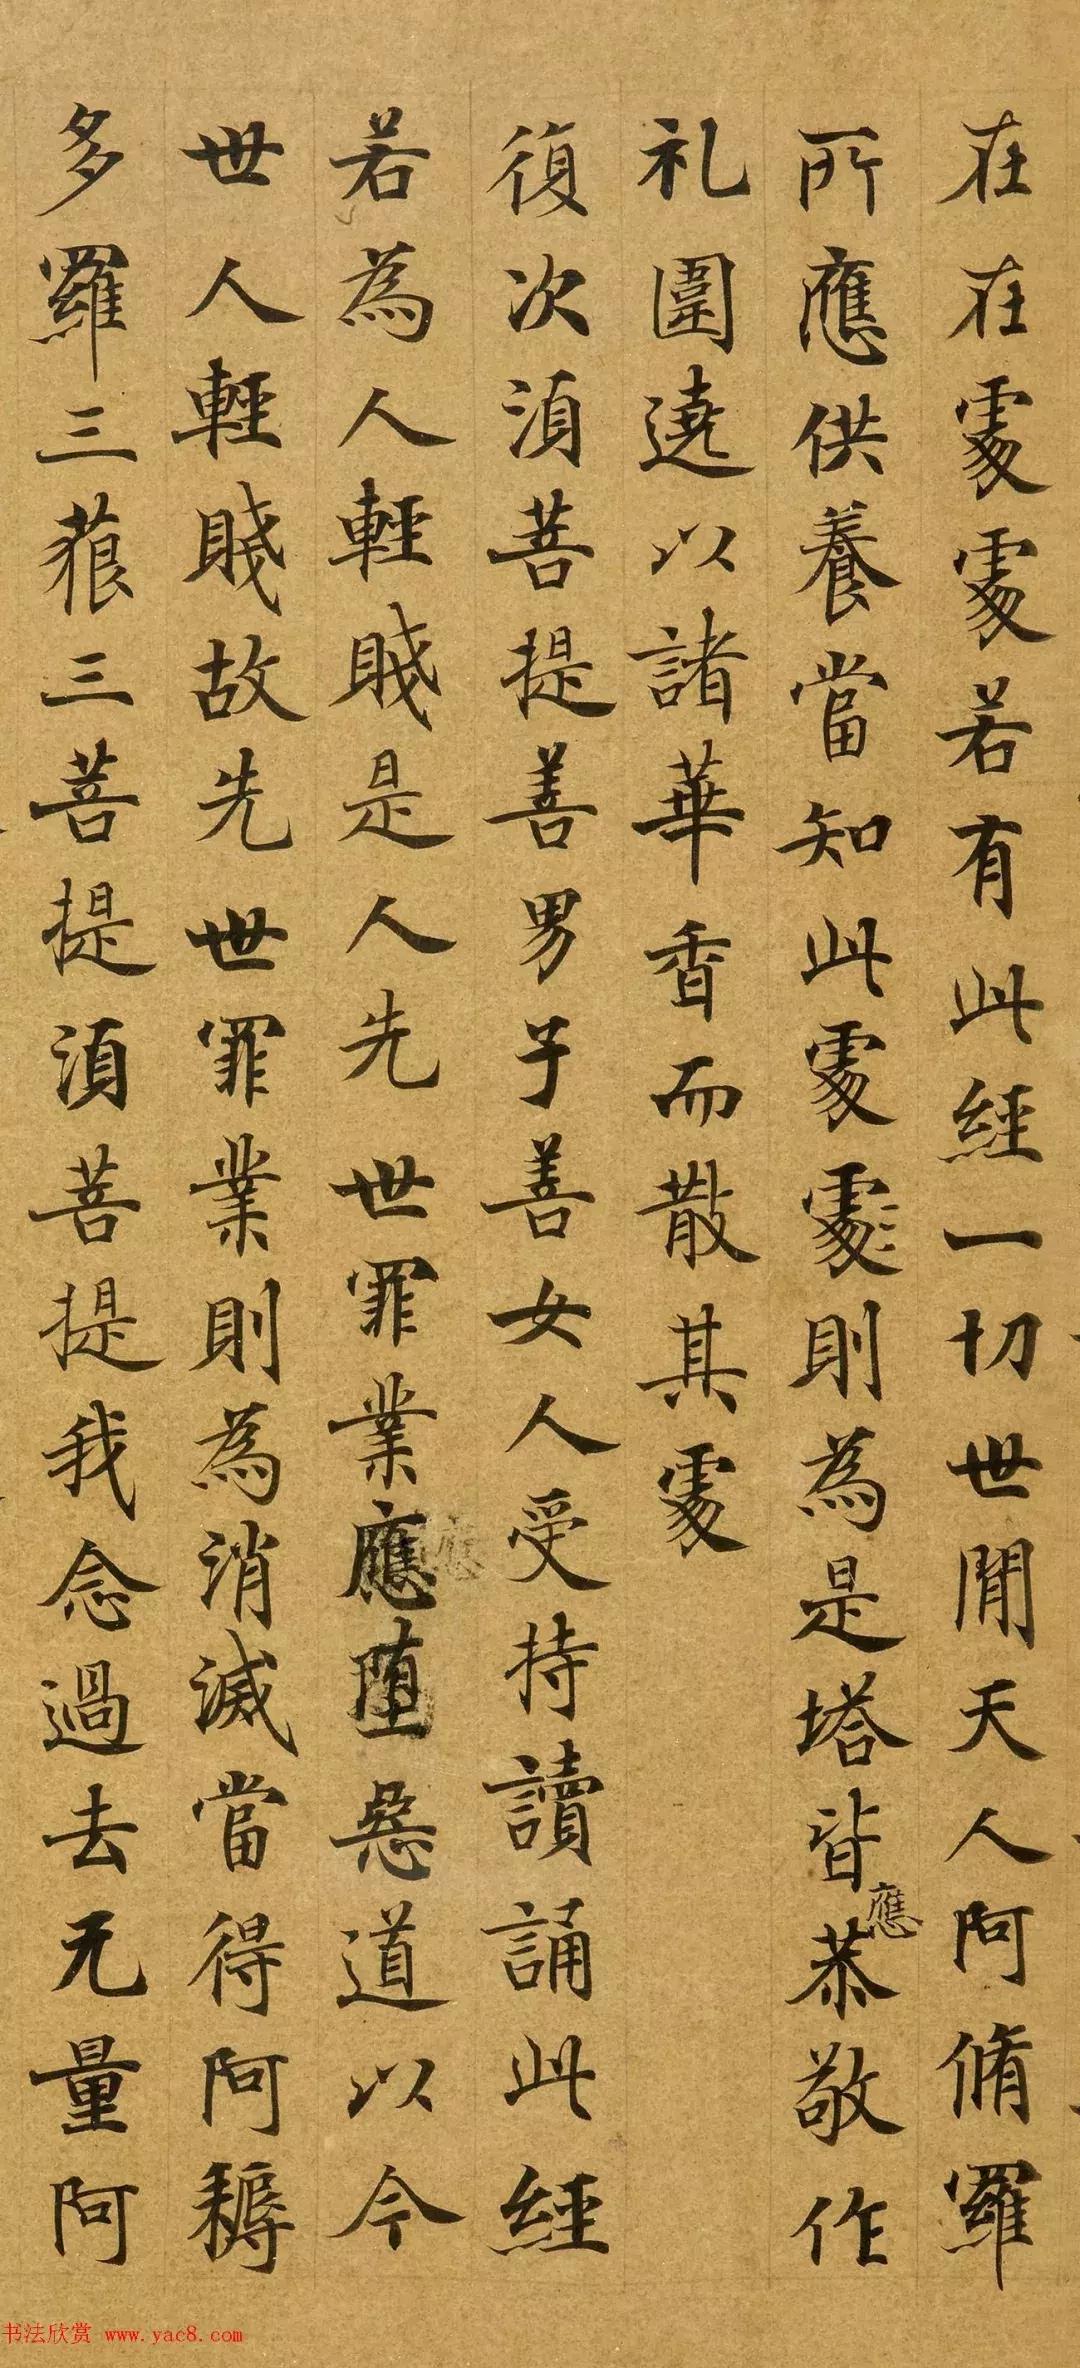 在在處處若有此經一切世間天人阿脩羅
所應供養當知此處處則為是塔皆應恭敬作
礼圍遶以諸華香而散其處
復次須菩提善男子善女人受持讀誦此經
若為人輕賤是人先世罪業應堕惡道以今
世人輕賤故先世罪業則為消滅當得阿耨
多羅三藐三菩提須菩提我念過去无量阿
应
书法欣赏 www.yac8.com